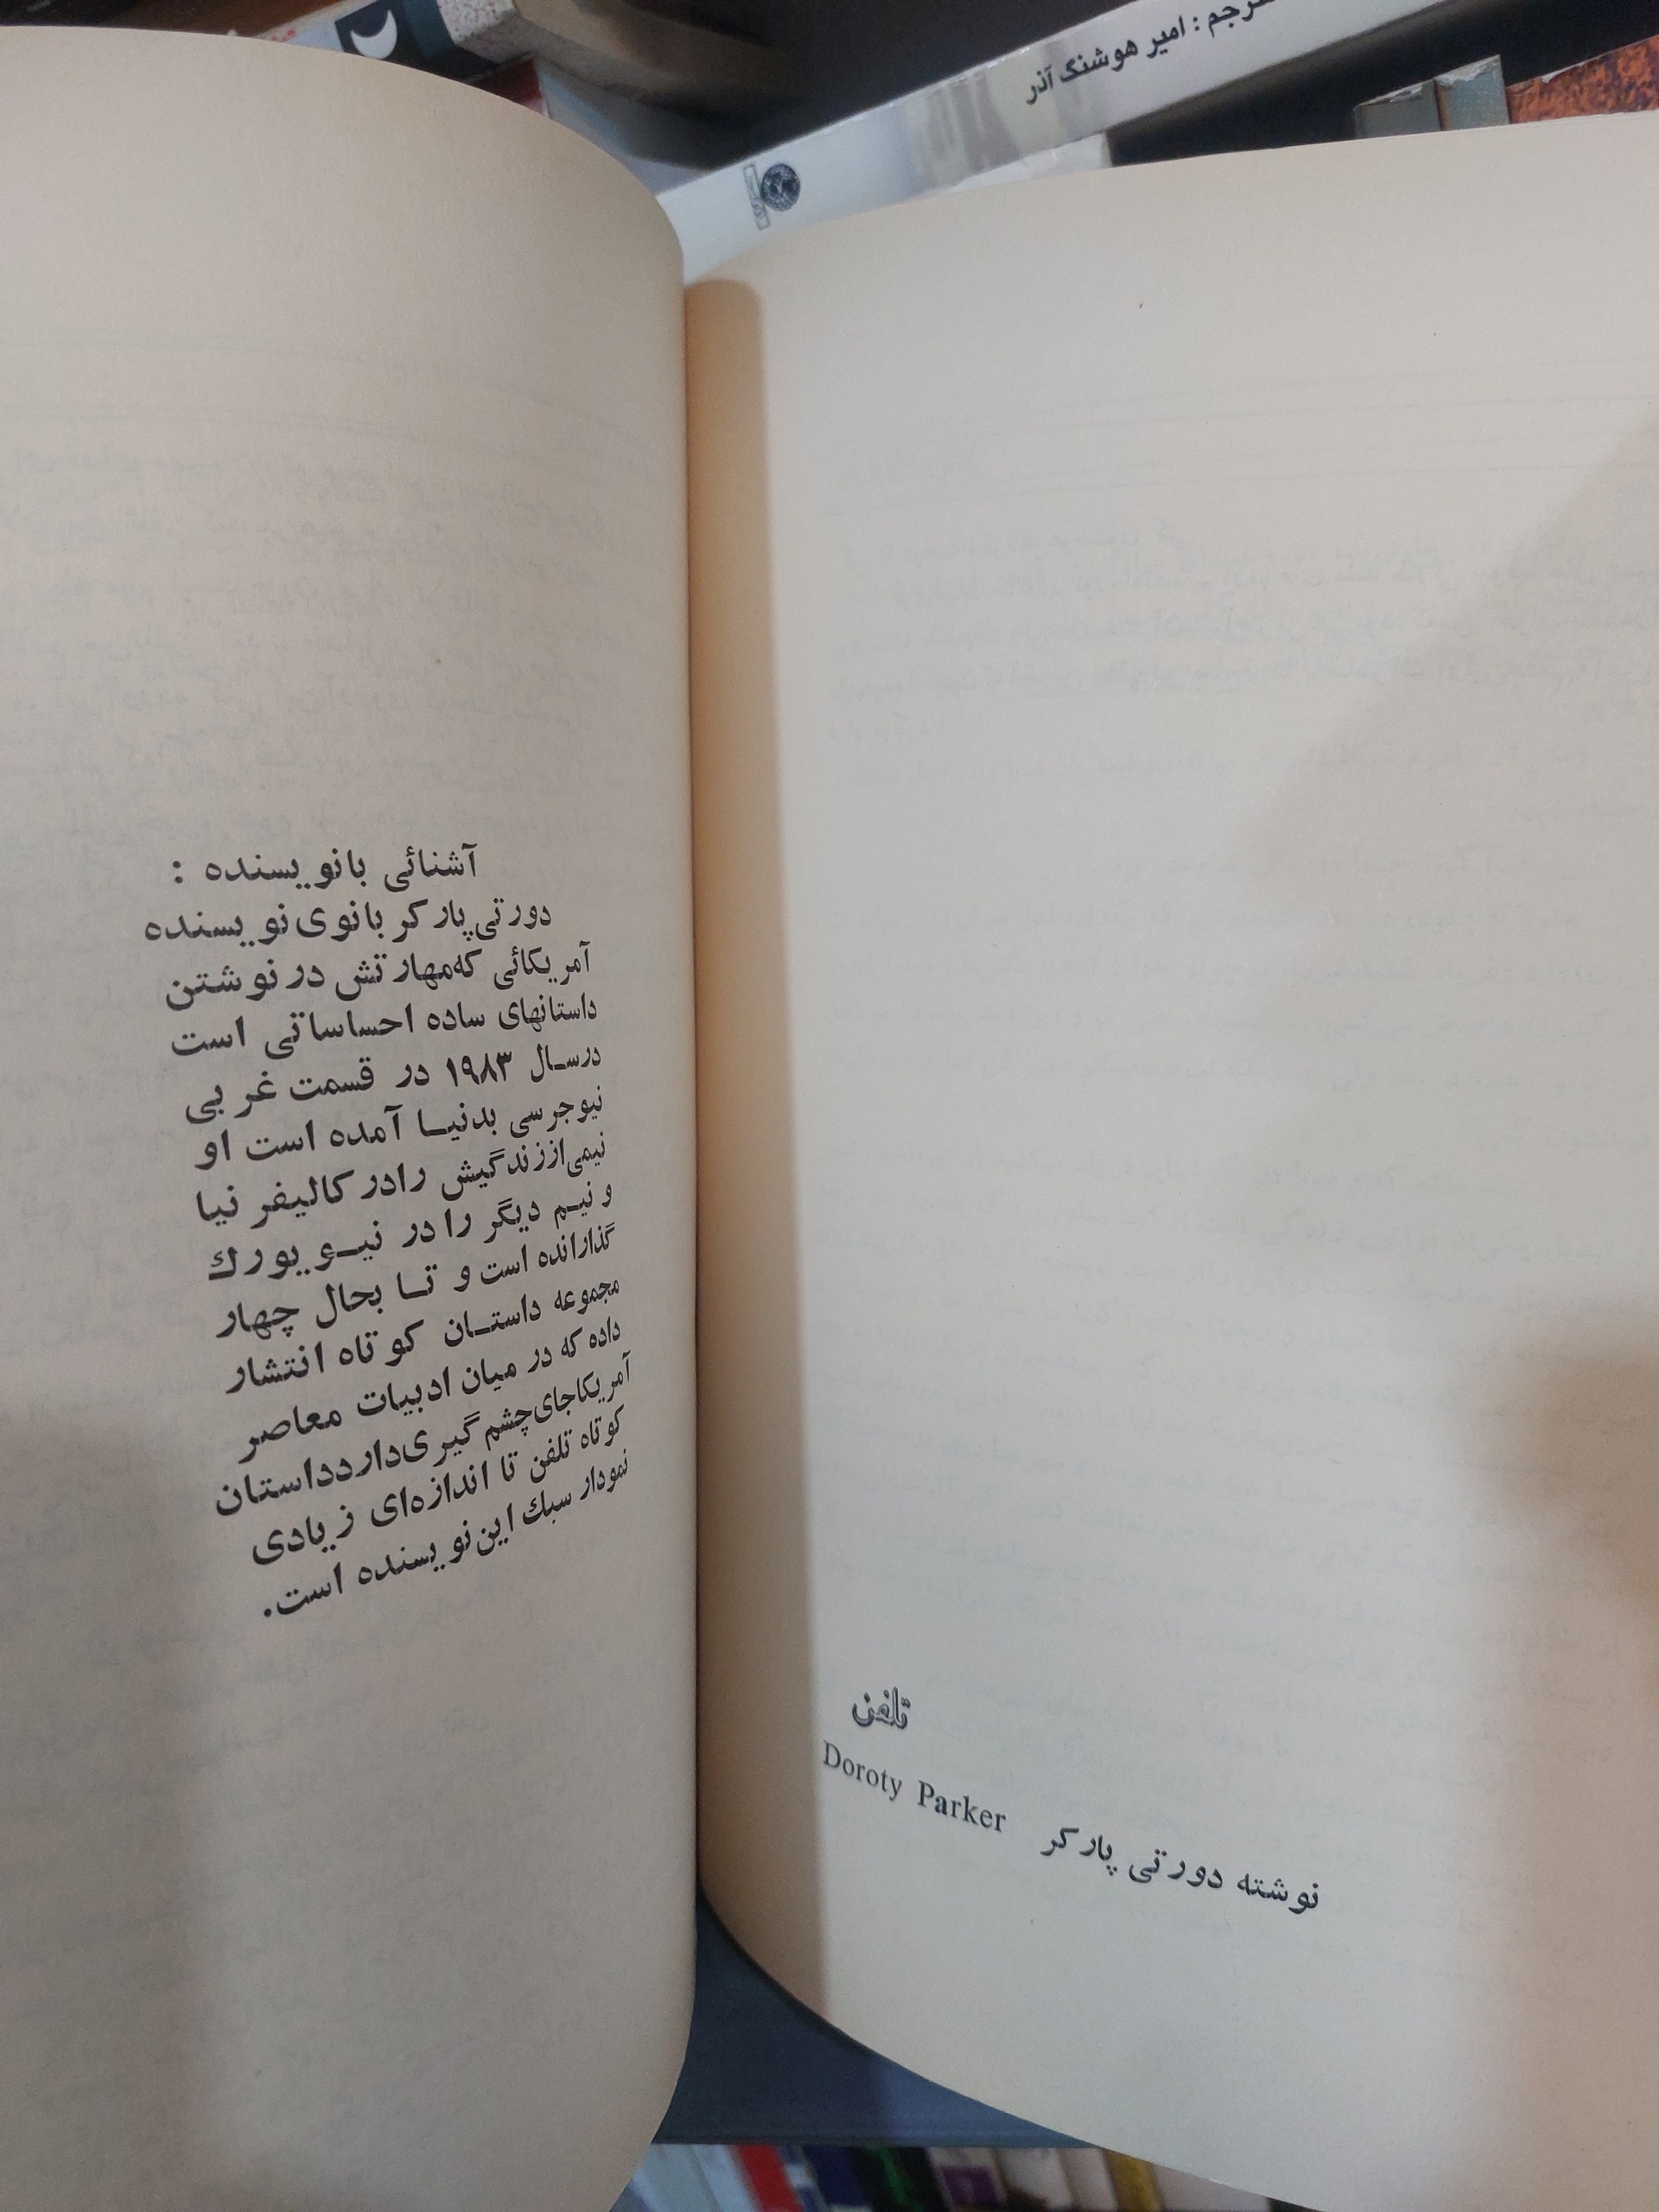 مترجم : امیر هوشنگ آذر
تلفن
نوشته دورتی پارکر Doroty Parker
آشنائی بانویسنده :
دورتی پارکر بانوی نویسنده
آمریکائی که مهارتش در نوشتن
داستانهای ساده احساساتی است
درسال ۱۹۸۳ در قسمت غربی
نیوجرسی بدنیا آمده است او
نیمی از زندگیش رادر کالیفرنیا
و نیم دیگر را در نیویورك
گذارانده است و تا بحال چهار
مجموعه داستان کوتاه انتشار
داده که در میان ادبیات معاصر
آمریکاجای چشم گیری دارد داستان
کوتاه تلفن تا اندازه‌ای زیادی
نمودار سبك این نویسنده است.